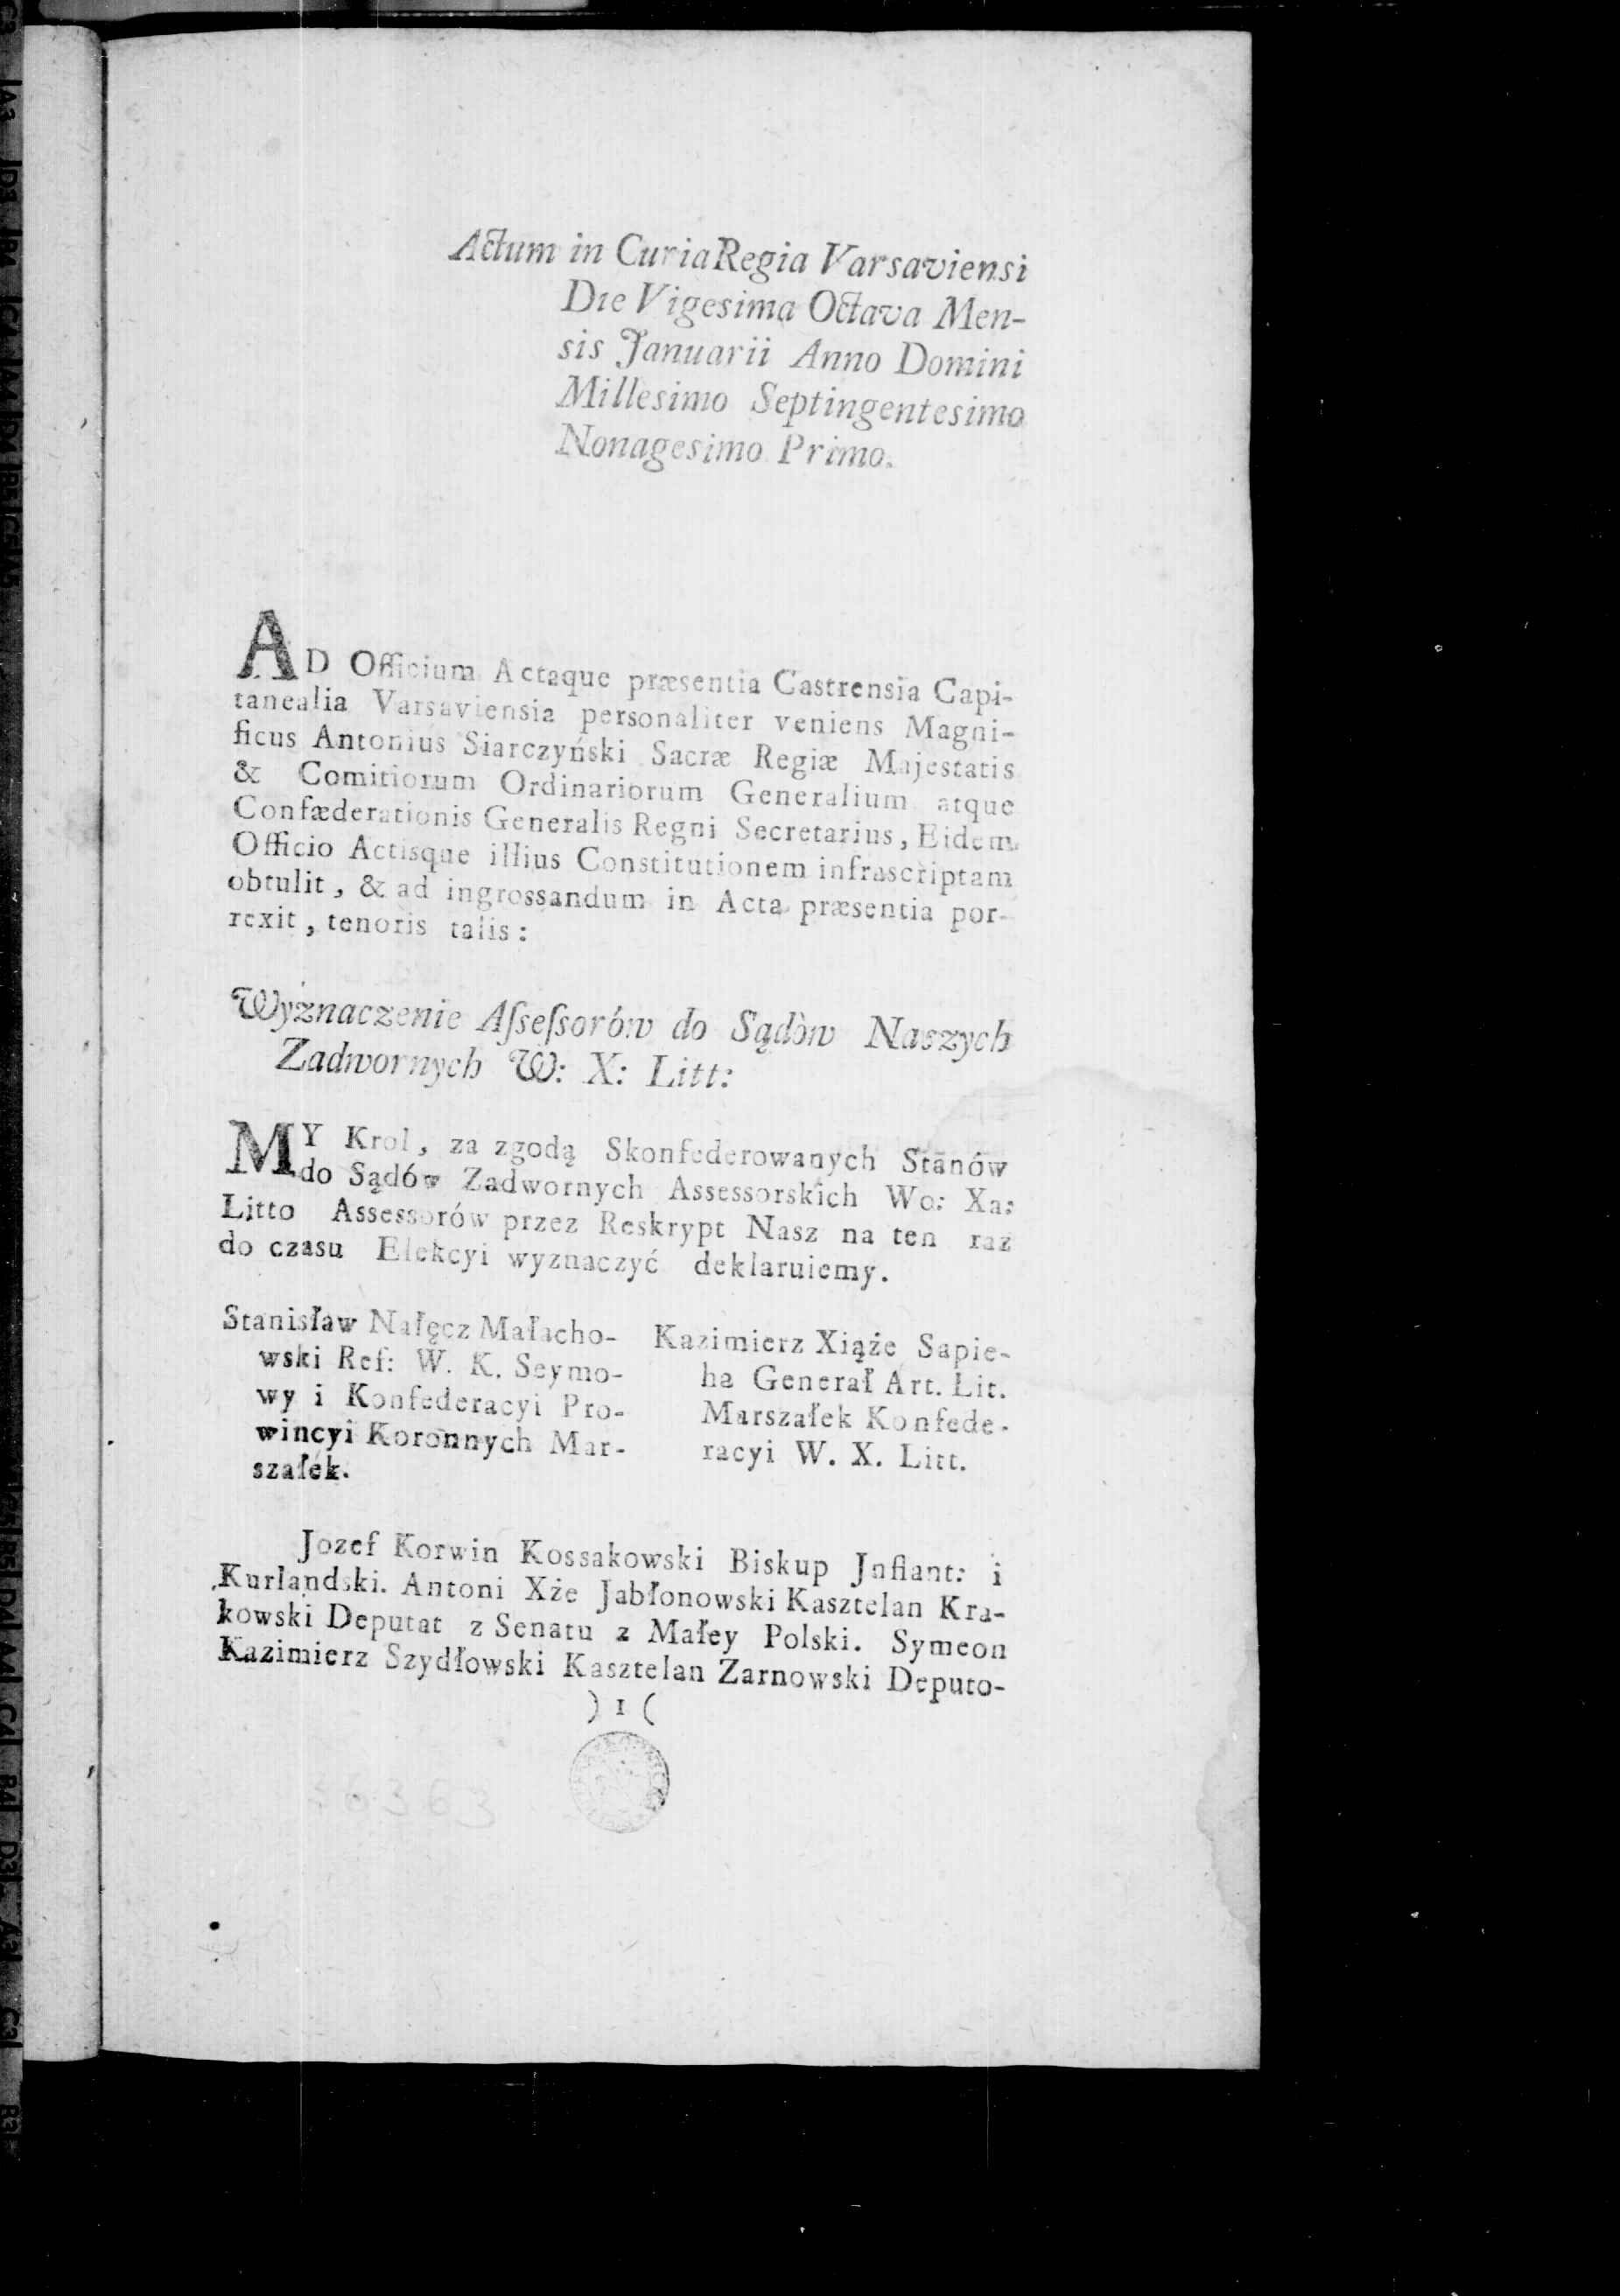 Actum in Curia Regia Varsaviensi
Die Vigesima Octava Men-
sis Januarii Anno Domini
Millesimo Septingentesimo
Nonagesimo Primo.
AD Officium Actaque præsentia Castrensia Capi-
tanealia Varsaviensia personaliter veniens Magni-
ficus Antonius Siarczyński Sacræ Regiæ Majestatis
& Comitiorum Ordinariorum Generalium atque
Confæderationis Generalis Regni Secretarius, Eidem
Officio Actisque illius Constitutionem infrascriptam
obtulit, & ad ingrossandum in Acta præsentia por-
rexit, tenoris talis:
Wyznaczenie Aſseſsorów do Sądòw Naszych
Zadwornych W: X: Litt:
MY Krol, za zgodą Skonfederowanych Stanów
do Sądów Zadwornych Assessorskich Wo: Xa:
Litto Assessorów przez Reskrypt Nasz na ten raz
do czasu Elekcyi wyznaczyć deklaruiemy.
Stanisław Nałęcz Małacho-
wski Ref: W. K. Seymo-
wy i Konfederacyi Pro-
wincyi Koronnych Mar-
szałek.
Kazimierz Xiąże Sapie-
ha Generał Art. Lit.
Marszałek Konfede-
racyi W. X. Litt.
Jozef Korwin Kossakowski Biskup Jnflant: i
Kurlandski. Antoni Xże Jabłonowski Kasztelan Kra-
kowski Deputat z Senatu z Małey Polski. Symeon
Kazimierz Szydłowski Kasztelan Zarnowski Deputo-
) 1 (
56363